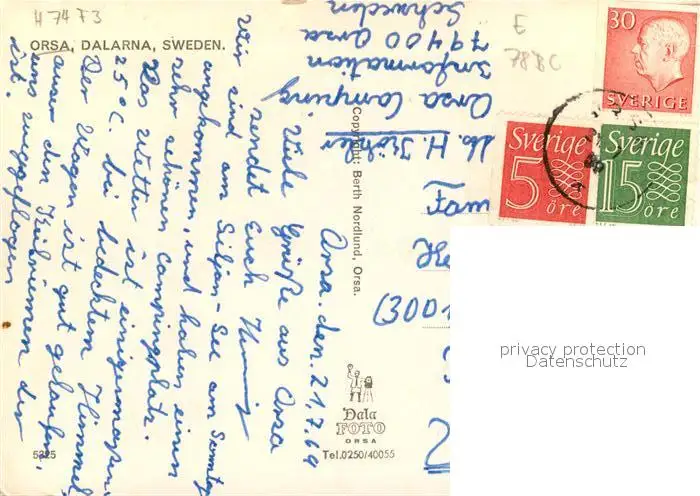 H 74 F3
ORSA, DALARNA, SWEDEN.
E
78BC
30
SVERIGE
Sverige
5
öre
Sverige
15
öre
Orsa, den 21.7.69
Viele Grüße aus Orsa
sendet Euch Henning
Wir sind am Siljan-See am Sonntag
angekommen, und haben einen
sehr schönen Campingplatz.
Das Wetter ist einigermaßen.
25°C. bei bedecktem Himmel
Der Wagen ist gut gelaufen,
ausser den Keilriemen der
uns weggeflogen
ist.
Fam
(3001
Orsa Camping
Information
79400 Orsa
Schweden
Copyright: Berth Nordlund, Orsa.
Dala
FOTO
ORSA
Tel.0250/40055
5325
privacy protection
Datenschutz